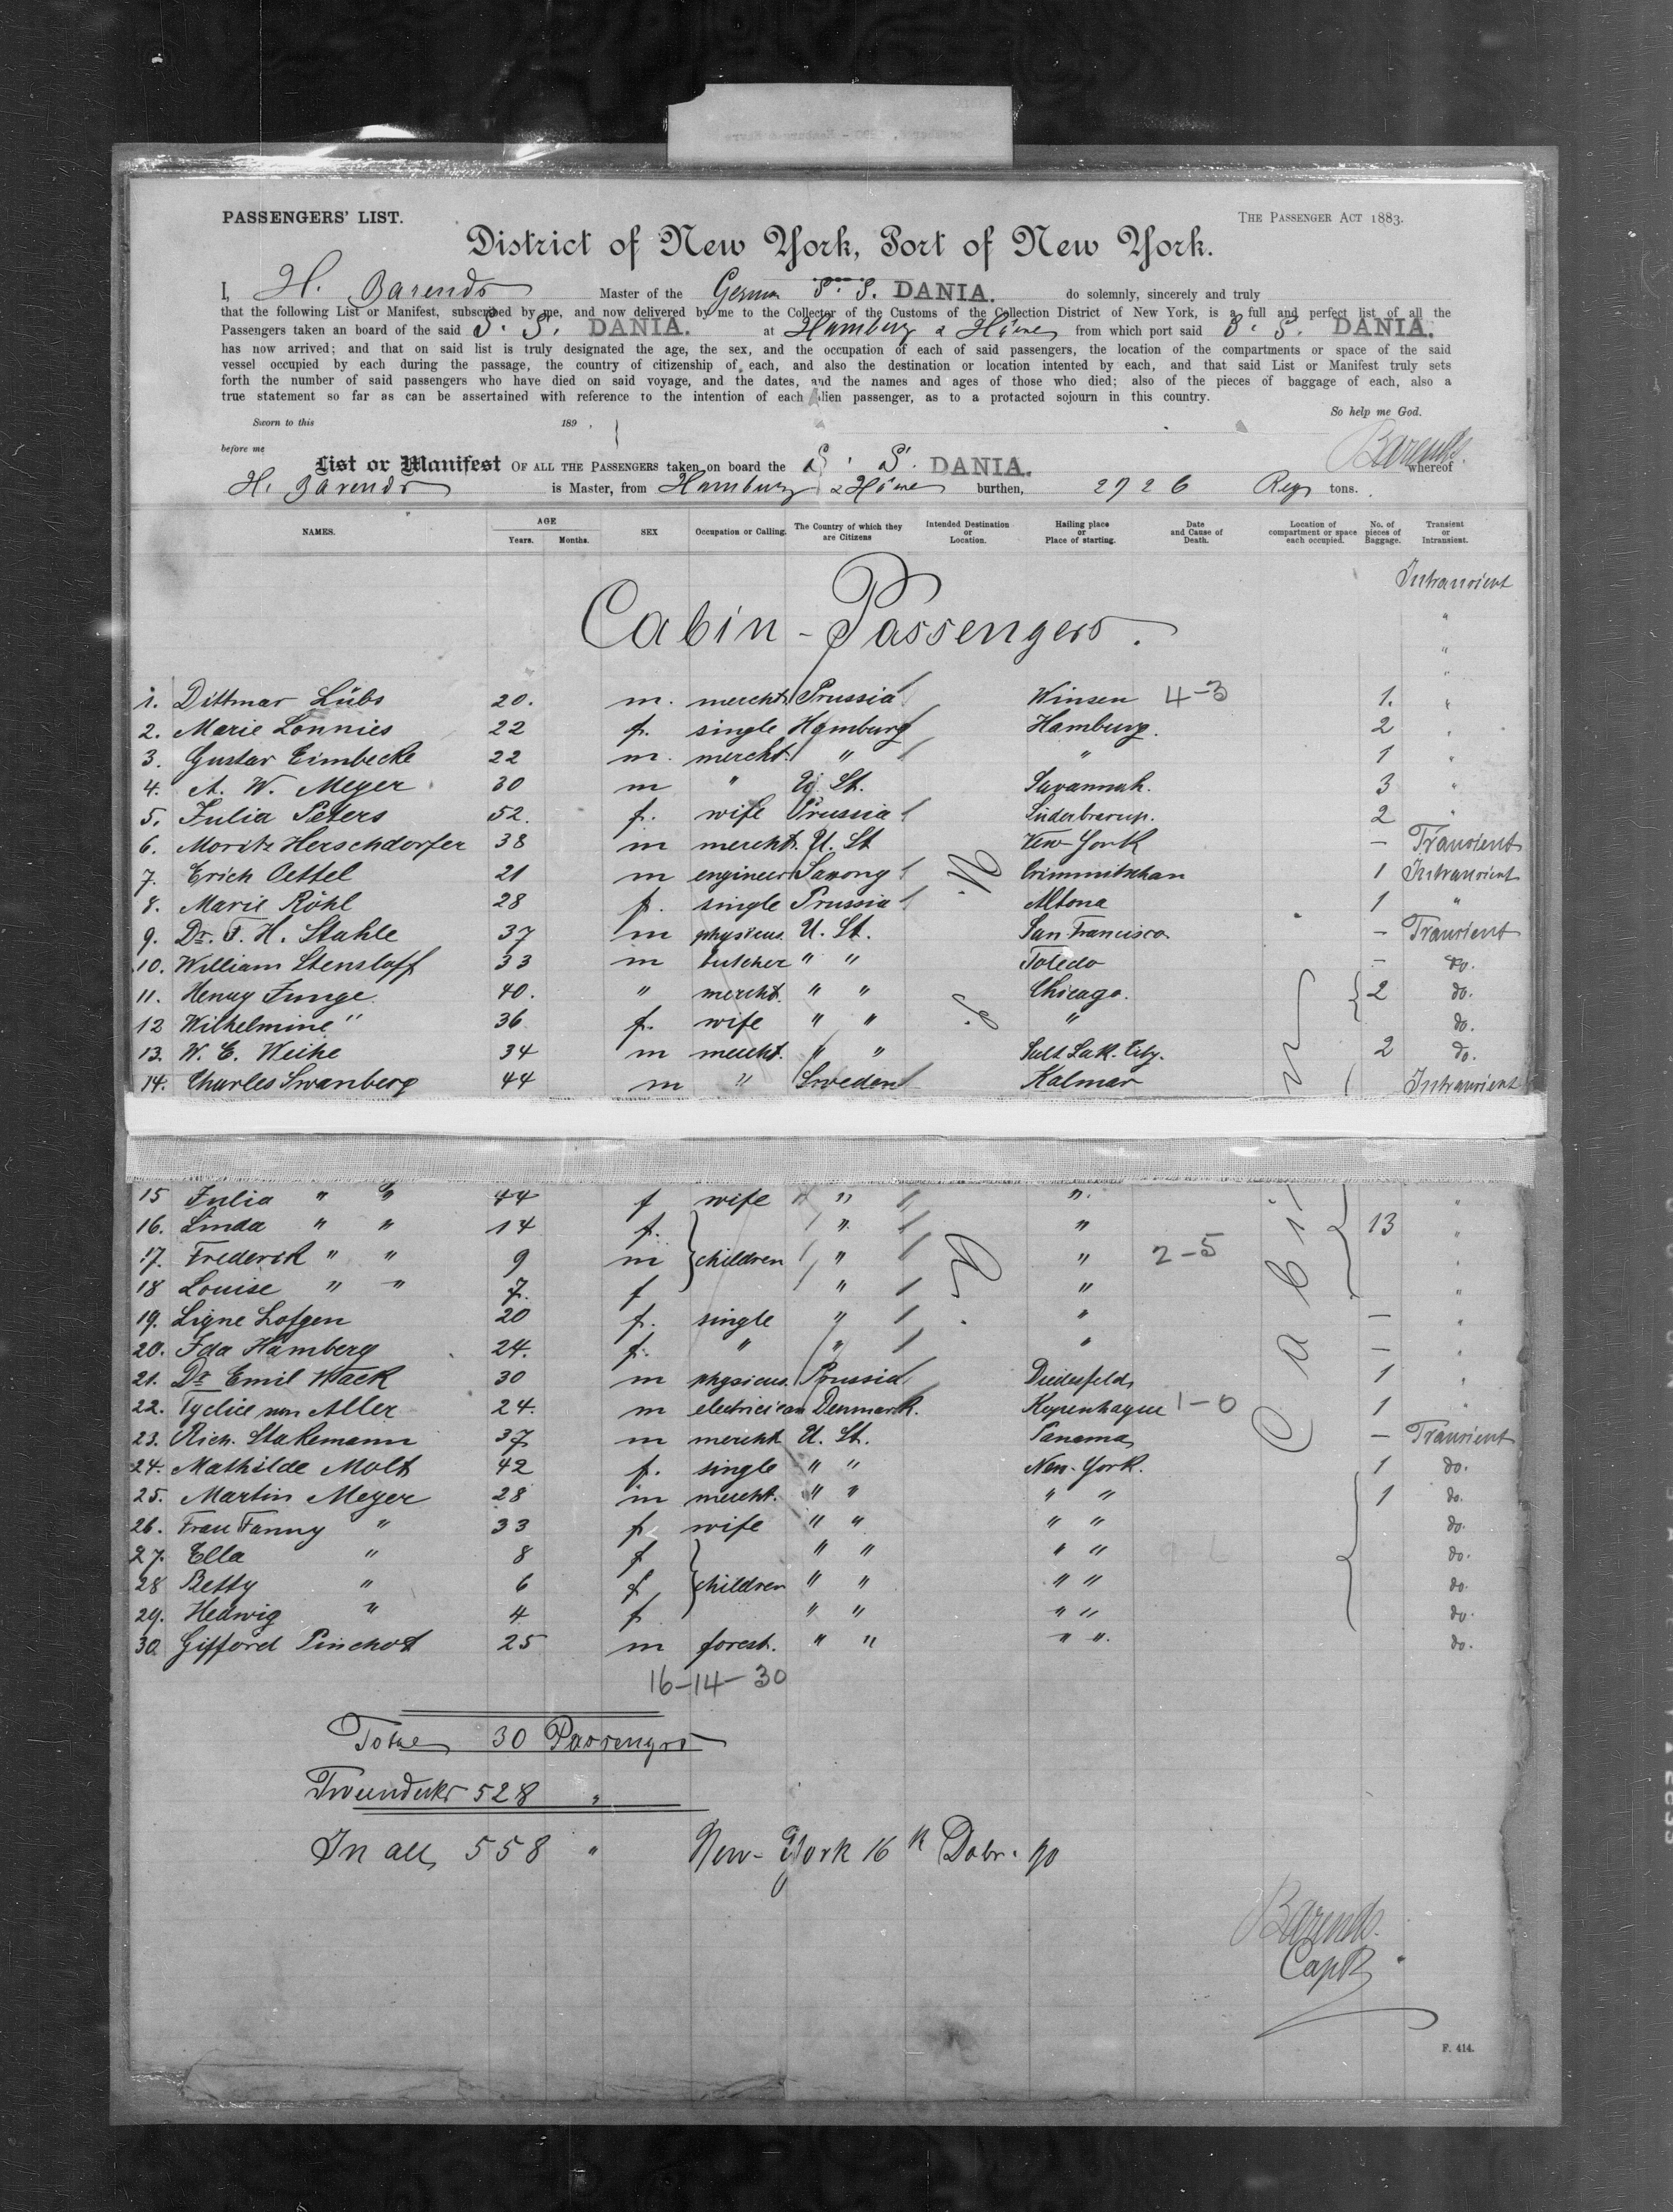 PASSENGERS' LIST.
THE PASSENGER ACT 1883.
District of New York, Port of New York.
I, H. Barends Master of the German S. S. DANIA. do solemnly, sincerely and truly
that the following List or Manifest, subscribed by me, and now delivered by me to the Collector of the Customs of the Collection District of New York, is a full and perfect list of all the
Passengers taken an board of the said S. S. DANIA. at Hamburg & Hâvre from which port said S. S. DANIA.
has now arrived; and that on said list is truly designated the age, the sex, and the occupation of each of said passengers, the location of the compartments or space of the said
vessel occupied by each during the passage, the country of citizenship of each, and also the destination or location intented by each, and that said List or Manifest truly sets
forth the number of said passengers who have died on said voyage, and the dates, and the names and ages of those who died; also of the pieces of baggage of each, also a
true statement so far as can be assertained with reference to the intention of each Alien passenger, as to a protacted sojourn in this country.
So help me God.
Sworn to this 189 ,
before me
Barends.
List or Manifest OF ALL THE PASSENGERS taken on board the S. S. DANIA. whereof
H. Barends is Master, from Hamburg & Hâvre burthen, 2926 Reg tons.
NAMES. AGE Years. Months. SEX Occupation or Calling. The Country of which they are Citizens Intended Destination or Location. Hailing place or Place of starting. Date and Cause of Death. Location of compartment or space each occupied. No. of pieces of Baggage. Transient or Intransient.
Intransient
"
Cabin-Passengers.
"
"
1. Dittmar Lübs 20. m. mercht. Prussia Winsen 4-3 1. "
2. Marie Lonnies 22 f. single Hamburg Hamburg. 2 "
3. Gustav Eimbecke 22 m. mercht. " " 1 "
4. A. W. Meyer 30 m " U. St. Savannah. 3 "
5. Julia Peters 52. f. wife Prussia Süderbrarup. 2 "
6. Moritz Herschdorfer 38 m mercht. U. St New York - Transient
7. Erich Oettel 21 m engineer Saxony Crimmitschau 1 Intransient
8. Marie Röhl 28 f. single Prussia Altona 1 "
9. Dr. F. H. Stahle 37 m physicus. U. St. San Francisco - Transient
10. William Stensloff 33 m butcher " " Toledo - do.
11. Henry Junge 40. " mercht. " " Chicago. 2 do.
12 Wilhelmine " 36 f. wife " " " do.
13. W. E. Weihe 34 m mercht. " " Salt Lak. City. 2 do.
14. Charles Swanberg 44 m " Sweden Kalmar Intransient
15 Julia " " 44 f wife " " "
16. Linda " " 14 f. " " 13 "
17. Frederik " " 9 m children " " 2-5 "
18 Louise " " 7. f " " "
19. Signe Lofgen 20 f. single " " - "
20. Ida Hamberg 24. f. " " " - "
21. Dr Emil Mack 30 m physicus. Prussia 1 "
22. Aller 24. m electrician Denmark. Kopenhagen 1-0 1 "
23. Rich. Stakemann 37 m mercht U. St. Panama - Transient
24. Mathilde Molt 42 f. single " " New-York. 1 do.
25. Martin Meyer 28 m mercht. " " " " 1 do.
26. Frau Fanny " 33 f wife " " " " do.
27. Ella " 8 f " " " " do.
28 Betty " 6 f children " " " " do.
29. Hedwig " 4 f " " " " do.
30. Gifford Pinchot 25 m forest. " " " " do.
N. Y.
Cabin
16-14-30
Total 30 Passengers
Tweendeks 528 "
In all, 558 " New-York 16th Dcbr. 90
Barends.
Capt
F. 414.